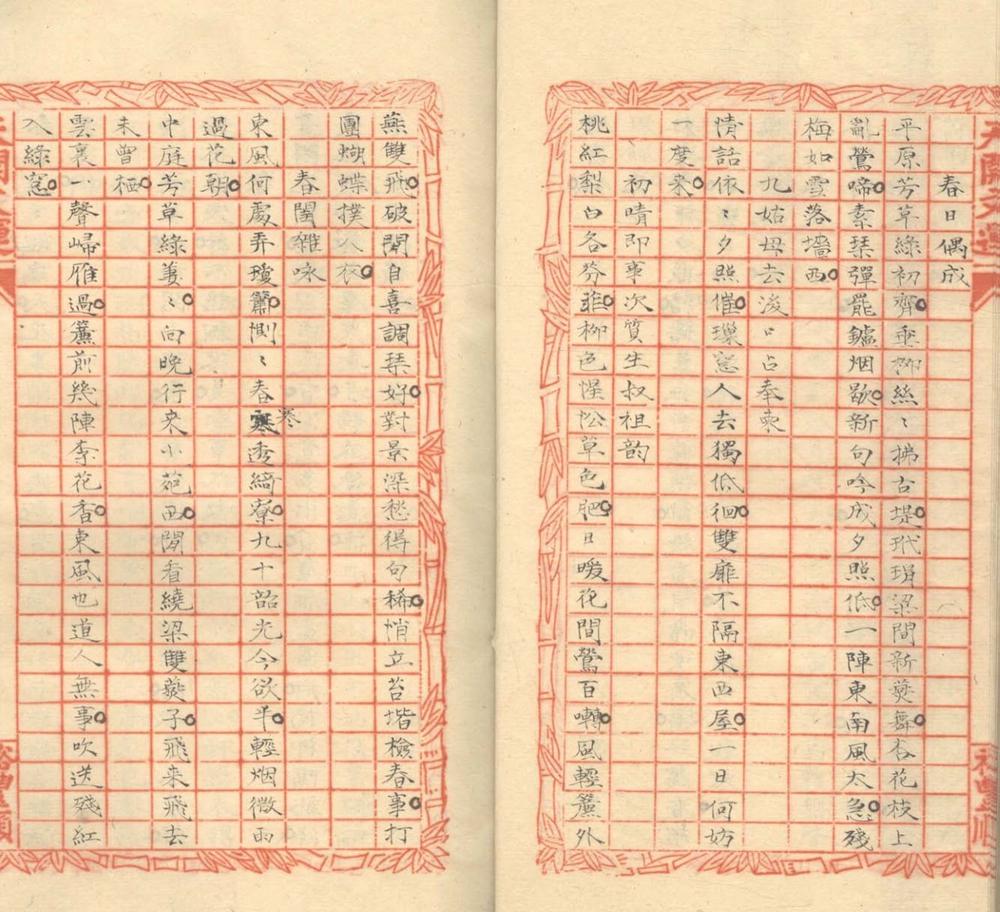 春日偶成
平原芳草綠初齊垂柳絲〻拂古堤玳瑁梁間新燕舞杏花枝上
亂鶯啼素琴彈罷鑪烟歇新句吟成夕照低一陣東南風太急殘
梅如雪落墻西
九姑母去後口占奉柬
情話依〻夕照催瓅窓人去獨低徊雙扉不隔東西屋一日何妨
一度来
初晴即事次質生叔祖韵
桃紅梨白各芬菲柳色惺忪草色肥日暖花間鶯百囀風輕簾外
燕雙飛破閒自喜調琴好對景深愁得句稀悄立苔堦檢春事打
團蝴蝶撲人衣
春閨雜咏
東風何處弄瓊簫惻〻春寒透綺寮九十韶光今欲半輕烟微雨
過花朝
中庭芳草綠萋〻向晚行来小苑西閒看繞梁雙燕子飛来飛去
未曾栖
雲裏一聲歸雁過簾前幾陣李花香東風也道人無事吹送殘紅
入綠窓